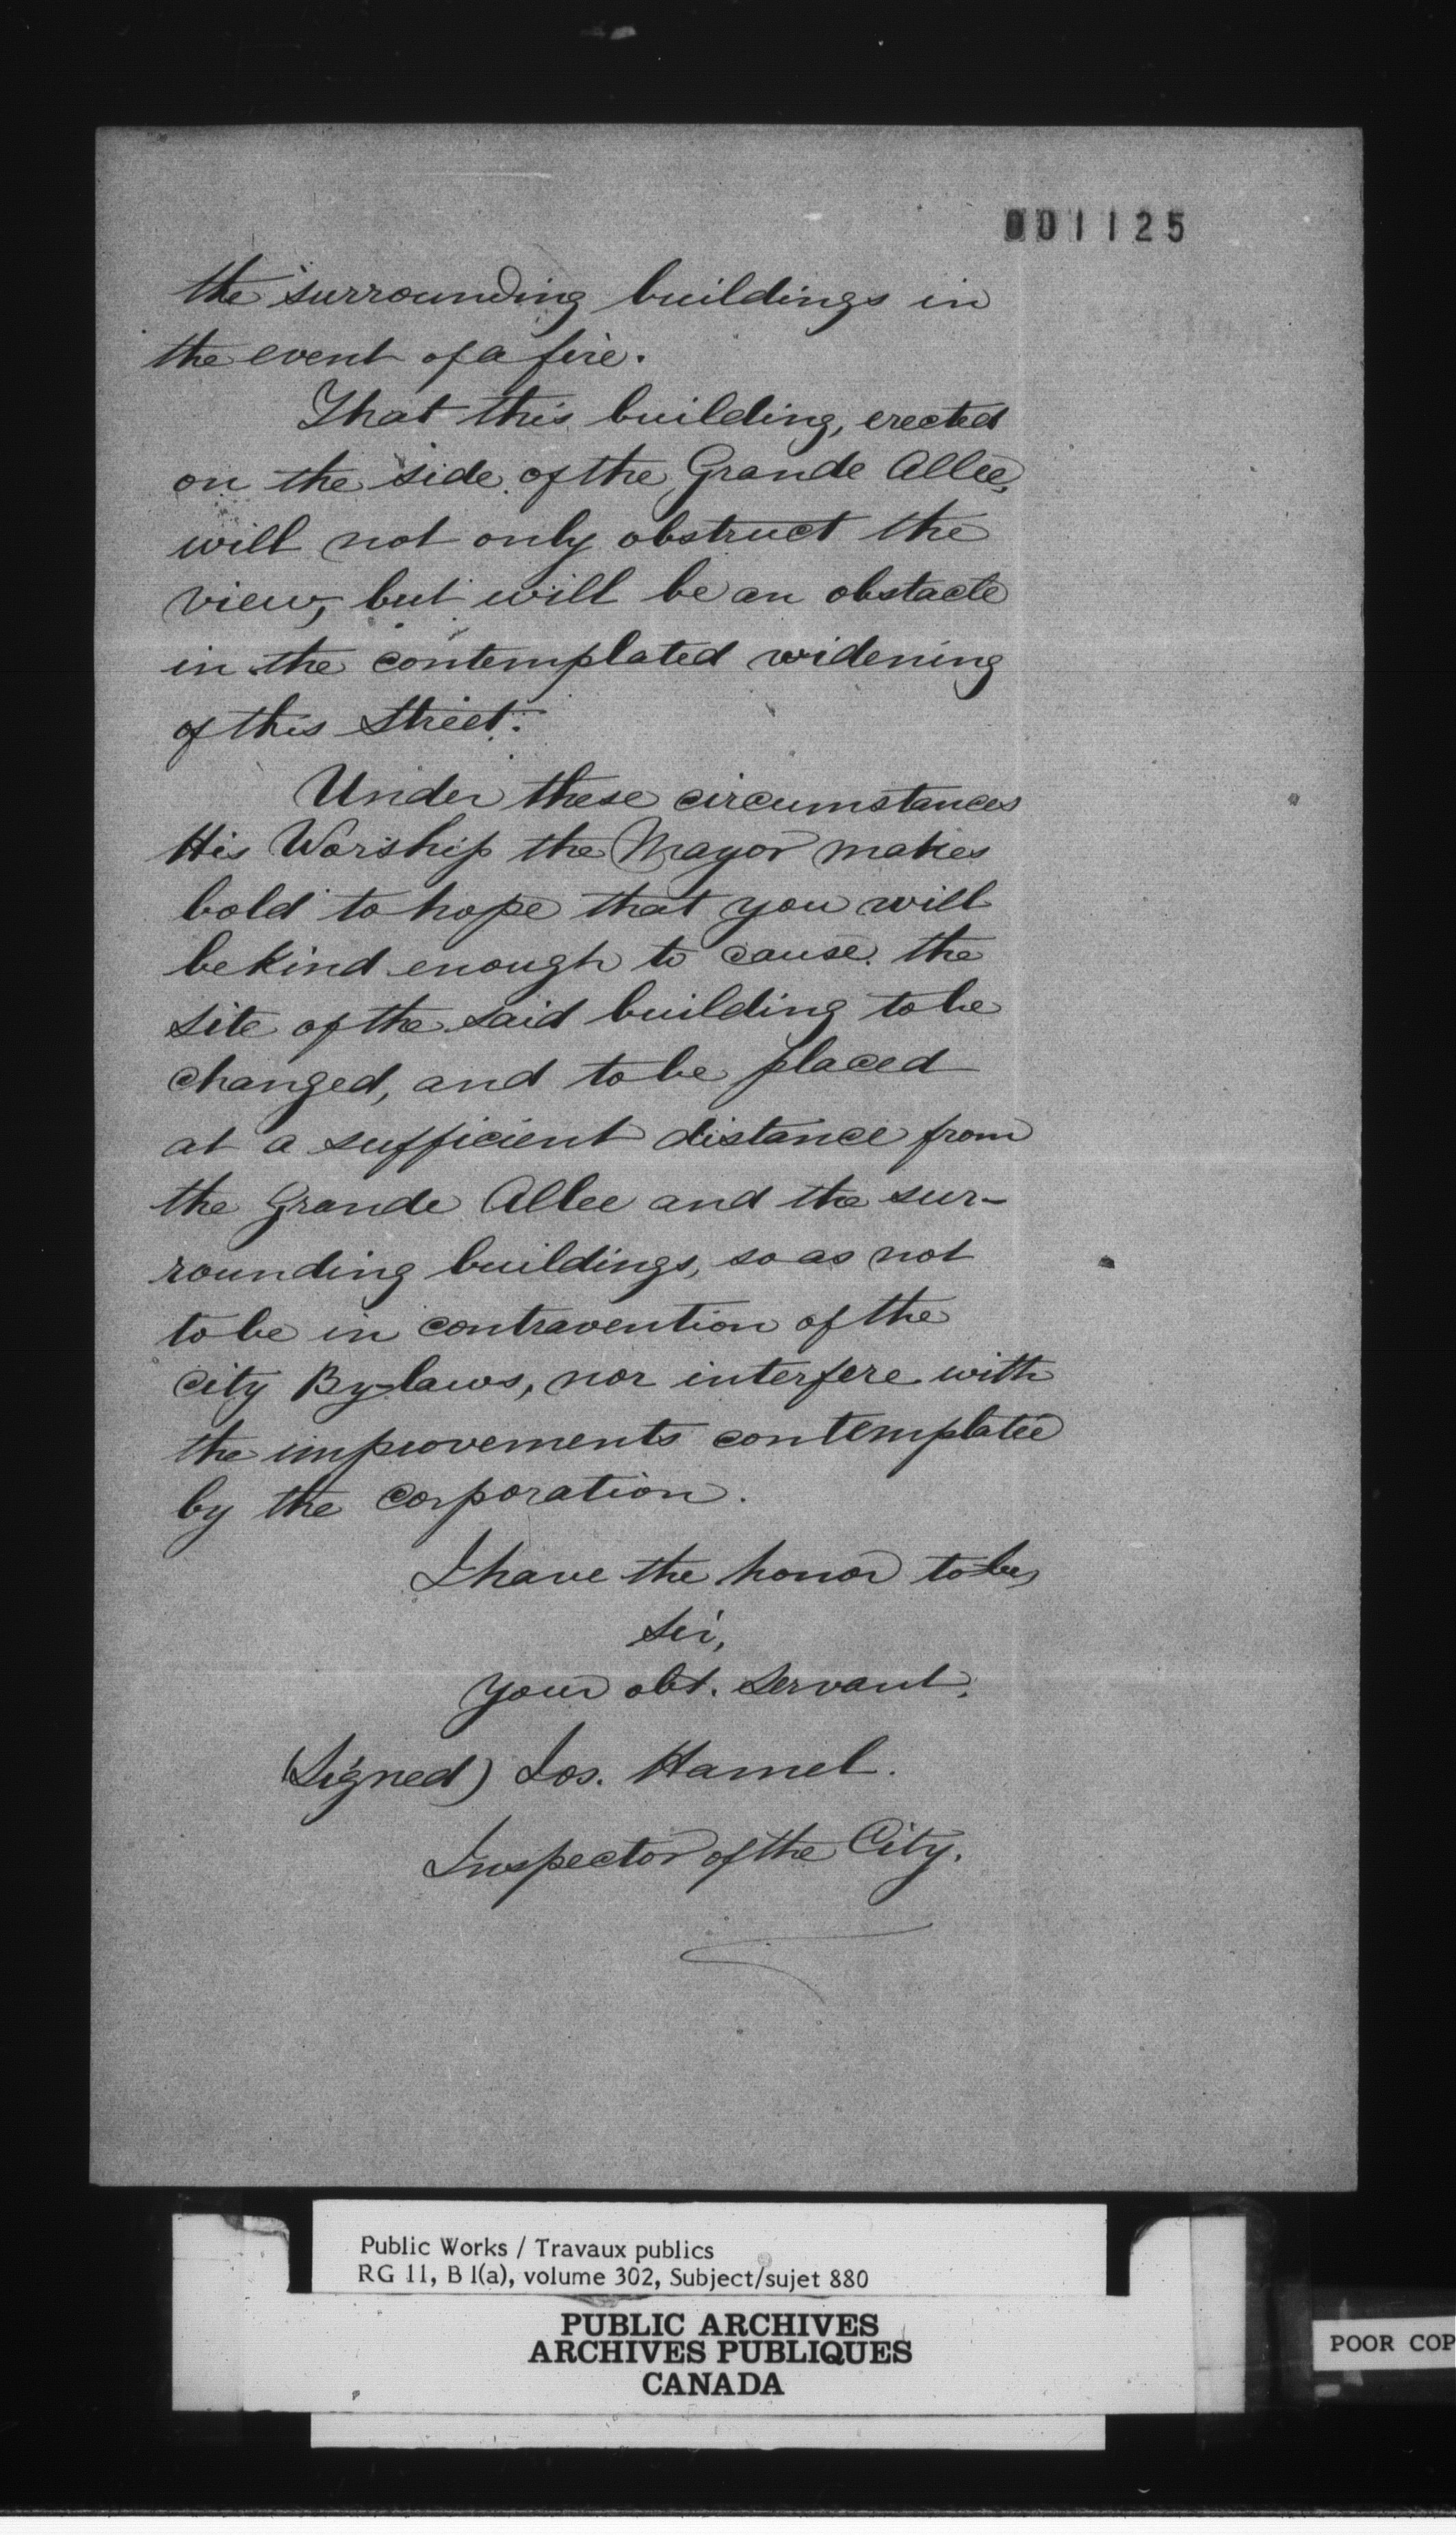 001125
the surrounding buildings in
the event of a fire.
That this building, erected
on the side of the Grande Allee,
will not only obstruct the
view, but will be an obstacle
in the contemplated widening
of this Street.
Under these circumstances
His Worship the Mayor makes
bold to hope that you will
be kind enough to cause the
site of the said building to be
changed, and to be placed
at a sufficient distance from
the Grande Allee and the sur-
rounding buildings, so as not
to be in contravention of the
City By-laws, nor interfere with
the improvements contemplated
by the Corporation.
I have the honor to be,
Sir,
Your obt. Servant,
(Signed) Jos. Hamel.
Inspector of the City.
Public Works / Travaux publics
RG 11, B 1(a), volume 302, Subject/sujet 880
PUBLIC ARCHIVES
ARCHIVES PUBLIQUES
CANADA
POOR COP